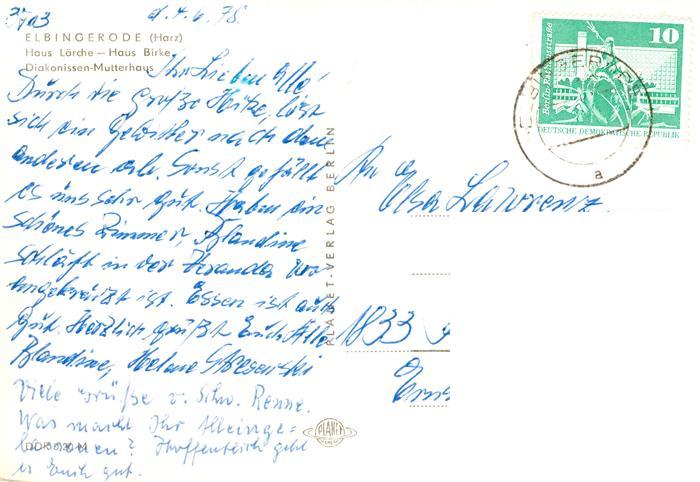 d. 4.6.78.
ELBINGERODE (Harz)
Haus Lärche – Haus Birke
Diakonissen-Mutterhaus
Ihr Lieben Alle!
Durch die große Hitze, löst
sich ein Gewitter nach dem
anderen ab. Sonst gefällt
es uns sehr gut. Haben ein
schönes Zimmer, Blandine
schläft in der Veranda wo
angekreuzt ist. Essen ist auch
gut. Herzlich grüßt Euch Alle
Blandine, Helene
Viele Grüße v. Schw. Renne.
Was macht Ihr Alleinge-
bliebenen? Hoffentlich geht
es Euch gut.
DDR
PLANET-VERLAG BERLIN
PLANET
An
Lawrenz
1833
Erns
10
Berlin-Rathausstraße
DEUTSCHE DEMOKRATISCHE REPUBLIK
a